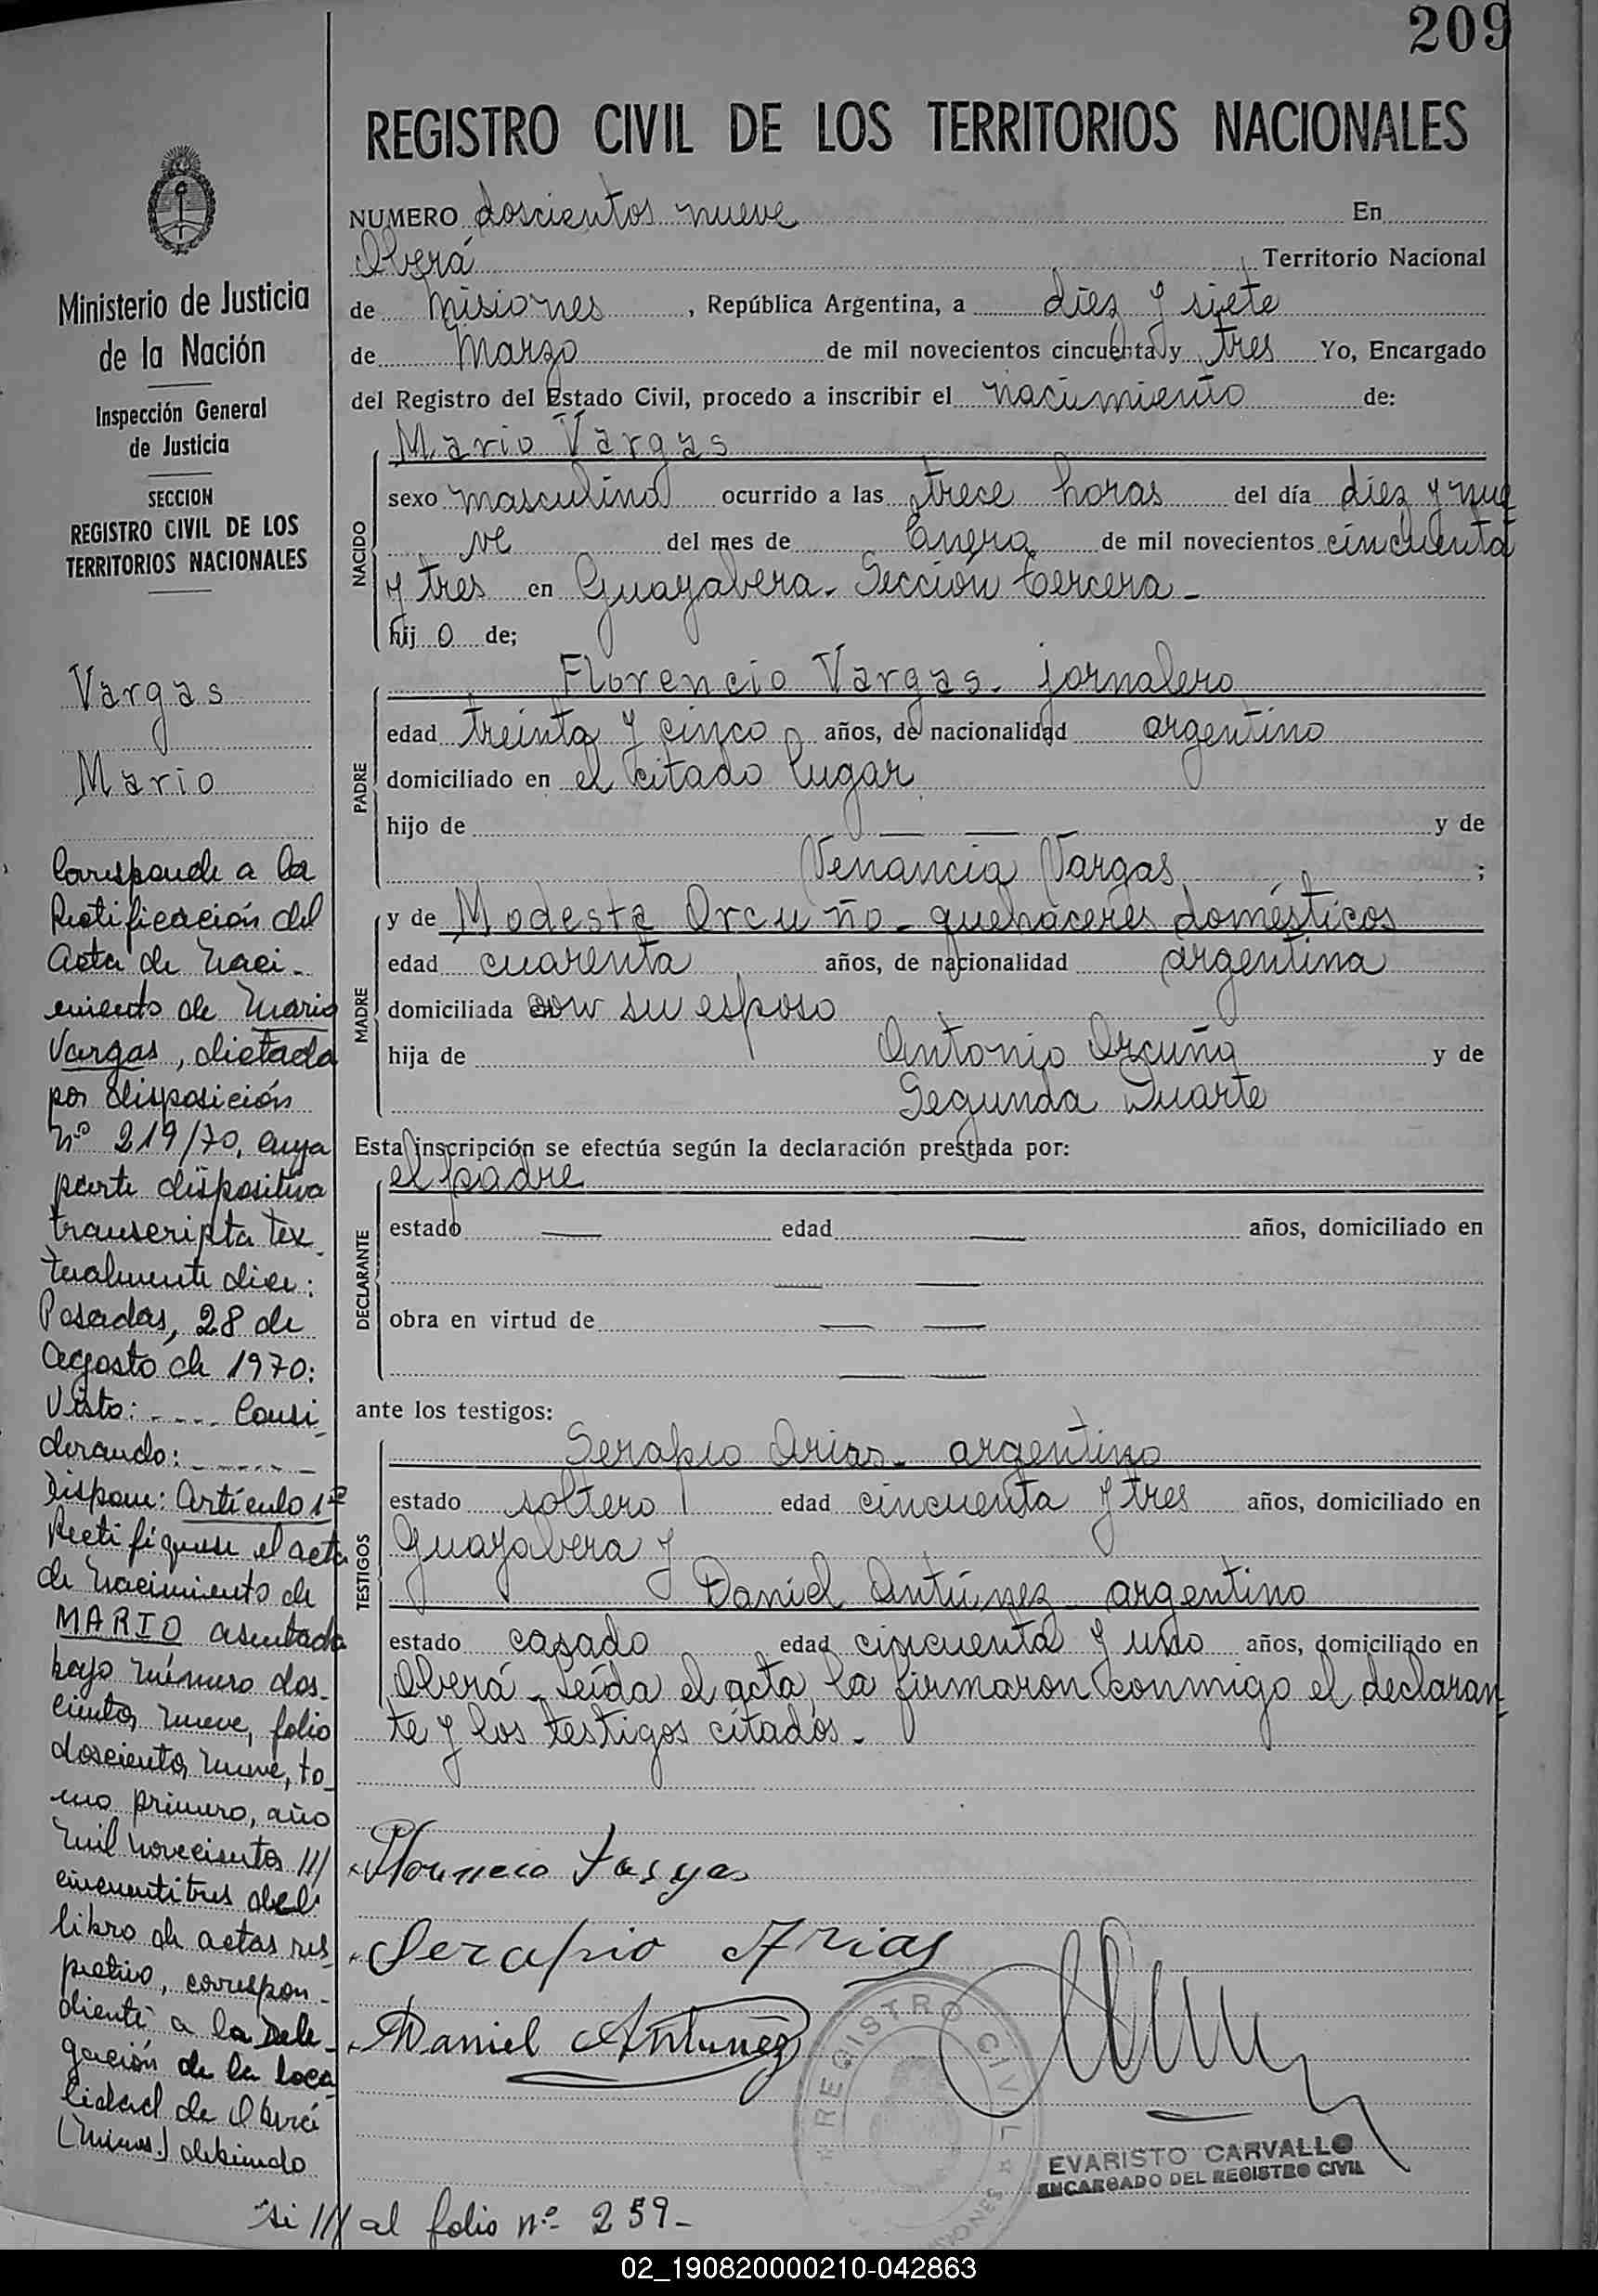 209
REGISTRO CIVIL DE LOS TERRITORIOS NACIONALES
Ministerio de Justicia
de la Nación
Inspección General
de Justicia
SECCION
REGISTRO CIVIL DE LOS
TERRITORIOS NACIONALES
Vargas
Mario
Corresponde a la
Rectificación del
Acta de Naci-
miento de Mario
Vargas, dictada
por disposición
Nº 219/70, cuya
parte dispositiva
transcripta tex-
tualmente dice:
Posadas, 28 de
agosto de 1970:
Visto: .... Consi-
derando: ......
Dispone: Artículo 1º
Rectifíquese el acta
de Nacimiento de
MARIO asentada
bajo número dos-
cientos nueve, folio
doscientos nueve, to-
mo primero, año
mil novecientos ///
cincuentitres del
libro de actas res-
pectivo, correspon-
diente a la Dele-
gación de la loca-
lidad de Oberá
(Mnes.) debiendo
NUMERO doscientos nueve En
Oberá Territorio Nacional
de Misiones, República Argentina, a diez y siete
de Marzo de mil novecientos cincuenta y tres Yo, Encargado
del Registro del Estado Civil, procedo a inscribir el nacimiento de:
NACIDO
Mario Vargas
sexo masculino ocurrido a las trece horas del día diez y nue
ve del mes de Enero de mil novecientos cincuenta
y tres en Guayabera. Sección tercera -
hijo de;
PADRE
Florencio Vargas. jornalero
edad treinta y cinco años, de nacionalidad argentino
domiciliado en el citado lugar
hijo de — — y de
Venancia Vargas ;
MADRE
y de Modesta Orcuño - quehaceres domésticos
edad cuarenta años, de nacionalidad argentina
domiciliada con su esposo
hija de Antonio Orcuño y de
Segunda Duarte
Esta inscripción se efectúa según la declaración prestada por:
DECLARANTE
el padre
estado — edad — años, domiciliado en
— —
obra en virtud de — —
— —
ante los testigos:
TESTIGOS
Serapio Arias - argentino
estado soltero edad cincuenta y tres años, domiciliado en
Guayabera y
Daniel Antúnez - argentino
estado casado edad cincuenta y uno años, domiciliado en
Oberá - Leída el acta, la firmaron conmigo el declaran-
te y los testigos citados.-
Florencio Vargas
Serapio Arias
Daniel Antunez
REGISTRO CIVIL
MISIONES
EVARISTO CARVALLO
ENCARGADO DEL REGISTRO CIVIL
Si /// al folio nº 259-
02_190820000210-042863